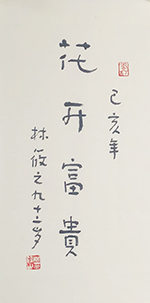 己亥年
花开富貴
林筱之九十六岁